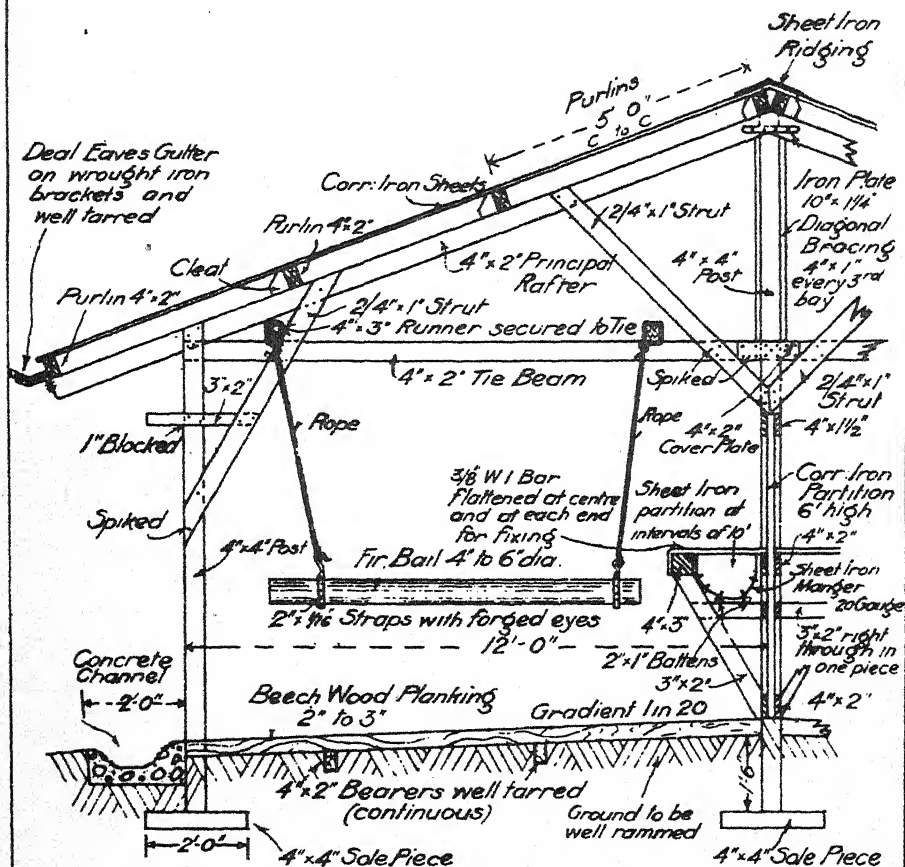 Sheet Iron
Ridging
Purlins
5' 0"
C to C
Deal Eaves Gutter
on wrought iron
brackets and
well tarred
Corr: Iron Sheets
Iron Plate
10" × 1¼"
2/4" × 1" Strut
Diagonal
Bracing
4" × 1"
every 3rd
bay
Purlin 4" × 2"
4" × 2" Principal
Rafter
4" × 4"
Post
Cleat
Purlin 4" × 2"
2/4" × 1" Strut
4" × 3" Runner secured to Tie
4" × 2" Tie Beam
Spiked
2/4" × 1"
Strut
3" × 2"
1" Blocked
Rope
Rope
4" × 2"
Cover Plate
4" × 1½"
3/8 W I Bar
flattened at centre
and at each end
for fixing
Sheet Iron
partition at
intervals of 10'
Corr: Iron
Partition
6' high
Spiked
4" × 4" Post
Fir Bail 4" to 6" dia.
4" × 2"
Sheet Iron
Manger
20 Gauge
2" × 1/16 Straps with forged eyes
4" × 3"
12'-0"
2" × 1" Battens
3" × 2"
3" × 2" right
through in
one piece
4" × 2"
Concrete
Channel
2'-0"
Beech Wood Planking
2" to 3"
Gradient 1 in 20
4" × 2" Bearers well tarred
(continuous)
Ground to be
well rammed
1'6"
2'-0"
4" × 4" Sole Piece
4" × 4" Sole Piece